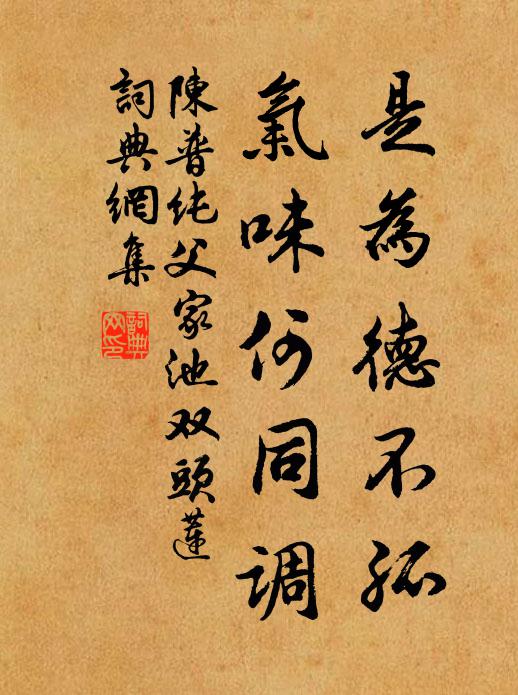 是為德不孤
氣味何同調
陳普純父家池双頭蓮
詞典網集
詞典
网印